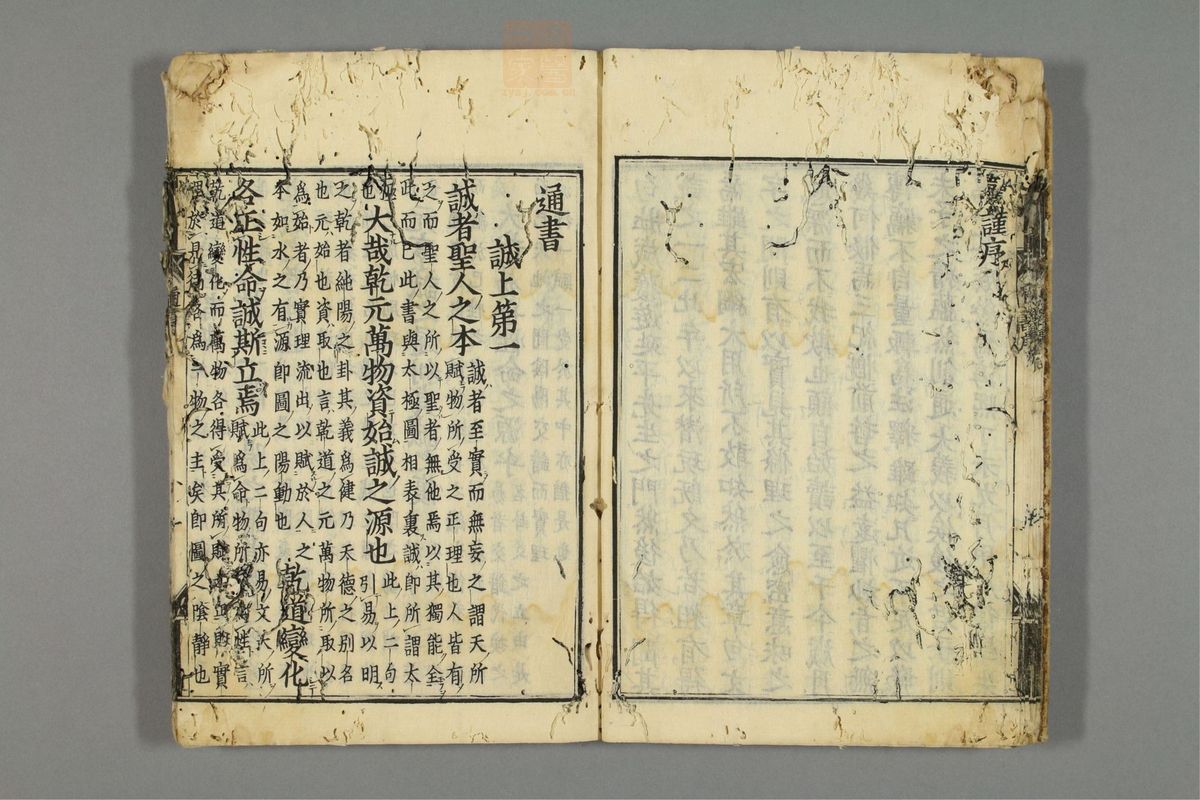 謹序
通書
誠上第一
誠者聖人之本
誠者至實而無妄之謂天所
賦物所受之正理也人皆有
之而聖人之所以聖者無他焉以其獨能全
此而已此書與太極圖相表裏誠即所謂太
極
也
大哉乾元萬物資始誠之源也
此上二句
引易以明
之乾者純陽之卦其義爲健乃天德之別名
也元始也資取也言乾道之元萬物所取以
爲始者乃實理流出以賦於人之
本如水之有源即圖之陽動也
乾道變化
各正性命誠斯立焉
此上二句亦易文天所
賦爲命物所受爲性言
乾道變化而萬物各得受其所賦之正則實
理於是而各爲一物之主矣即圖之陰靜也